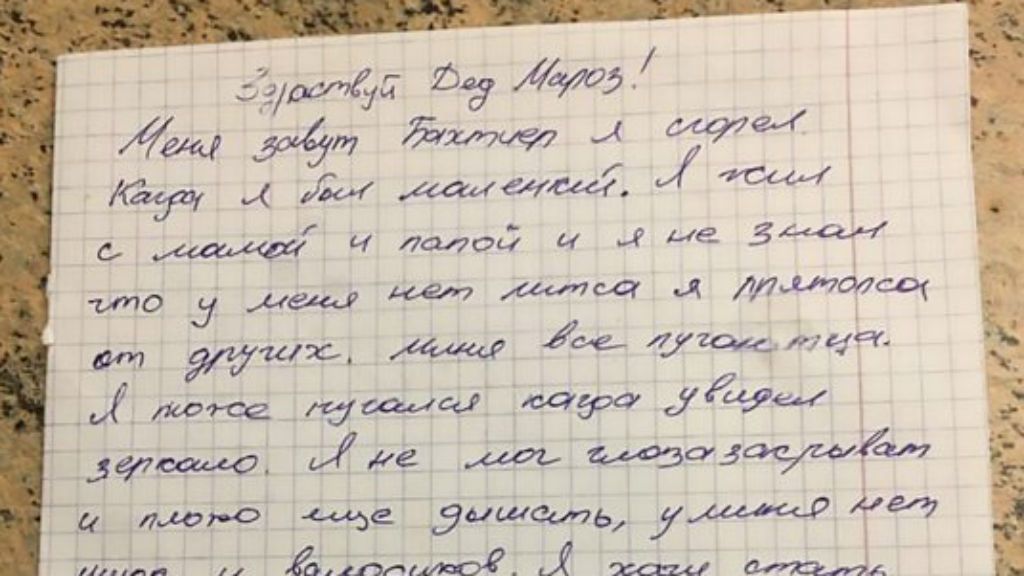 Здраствуй Дед Мароз!
Меня завут Бахтиер я сгорел
Кагда я был маленкий. Я жил
с мамой и папой и я не знал
что у меня нет литса я прятолса
от других. миня все пугаютца.
Я тоже пугался кагда увидел
зеркало. Я не мог глоза закрыват
и плохо еще дышать, у миня нет
и валосиков. Я хачу стать